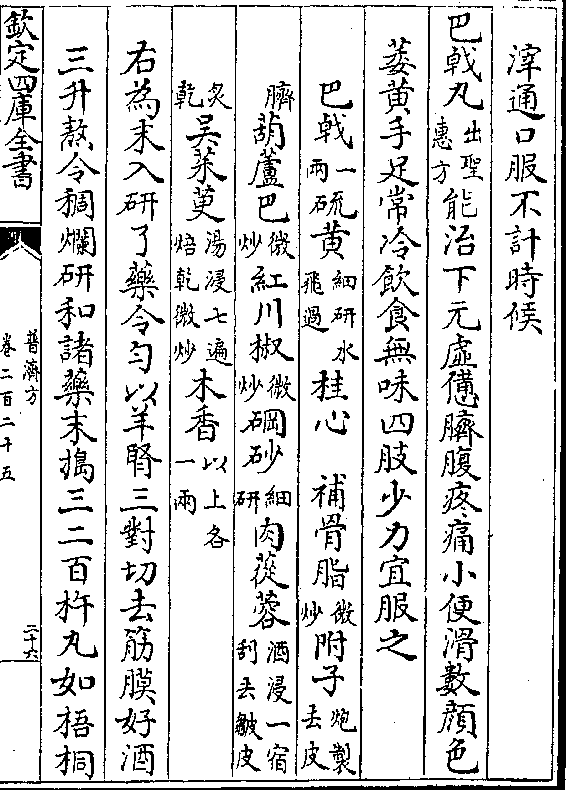 滓通口服不計時候
巴戟丸出聖惠方能治下元虛憊臍腹疼痛小便滑數顏色
萎黃手足常冷飲食無味四肢少力宜服之
巴戟一兩硫黃細研水飛過桂心 補骨脂微炒附子炮製去皮
臍葫蘆巴微炒紅川椒微炒碙砂細研肉蓯蓉酒浸一宿刮去皺皮
炙乾吳茱萸湯浸七遍焙乾微炒木香以上各一兩
右為末入研了藥令勻以羊腎三對切去筋膜好酒
三升熬令稠爛研和諸藥末搗三二百杵丸如梧桐
欽定四庫全書
普濟方
卷二百二十五
二十六